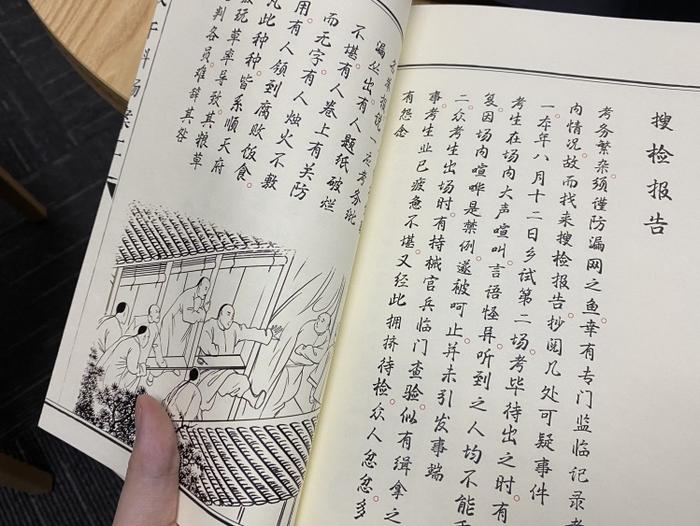 搜检报告
考务繁杂。须谨防漏网之鱼。幸有专门监临记录考
内情况。故而找来搜检报告。抄阅几处可疑事件
一本年八月十二日乡试第二场。考毕待出之时。有
考生在场内大声喧叫。言语怪异。听到之人均不能
复。因场内喧哗是禁例。遂被呵止。并未引发事端
二。众考生出场时。有持械官兵临门查验。似有缉拿之
事。考生业已疲惫不堪。又经此拥挤待检。众人忿忿。多
有怨念
考务纰
漏丛出。有人题纸破烂
不堪。有人卷上有关防
而无字。有人烛火不敷
用。有人领到腐败饭食。
凡此种种。皆系顺天府
玩草率导致。其粮草
判各员难辞其咎
子科场案